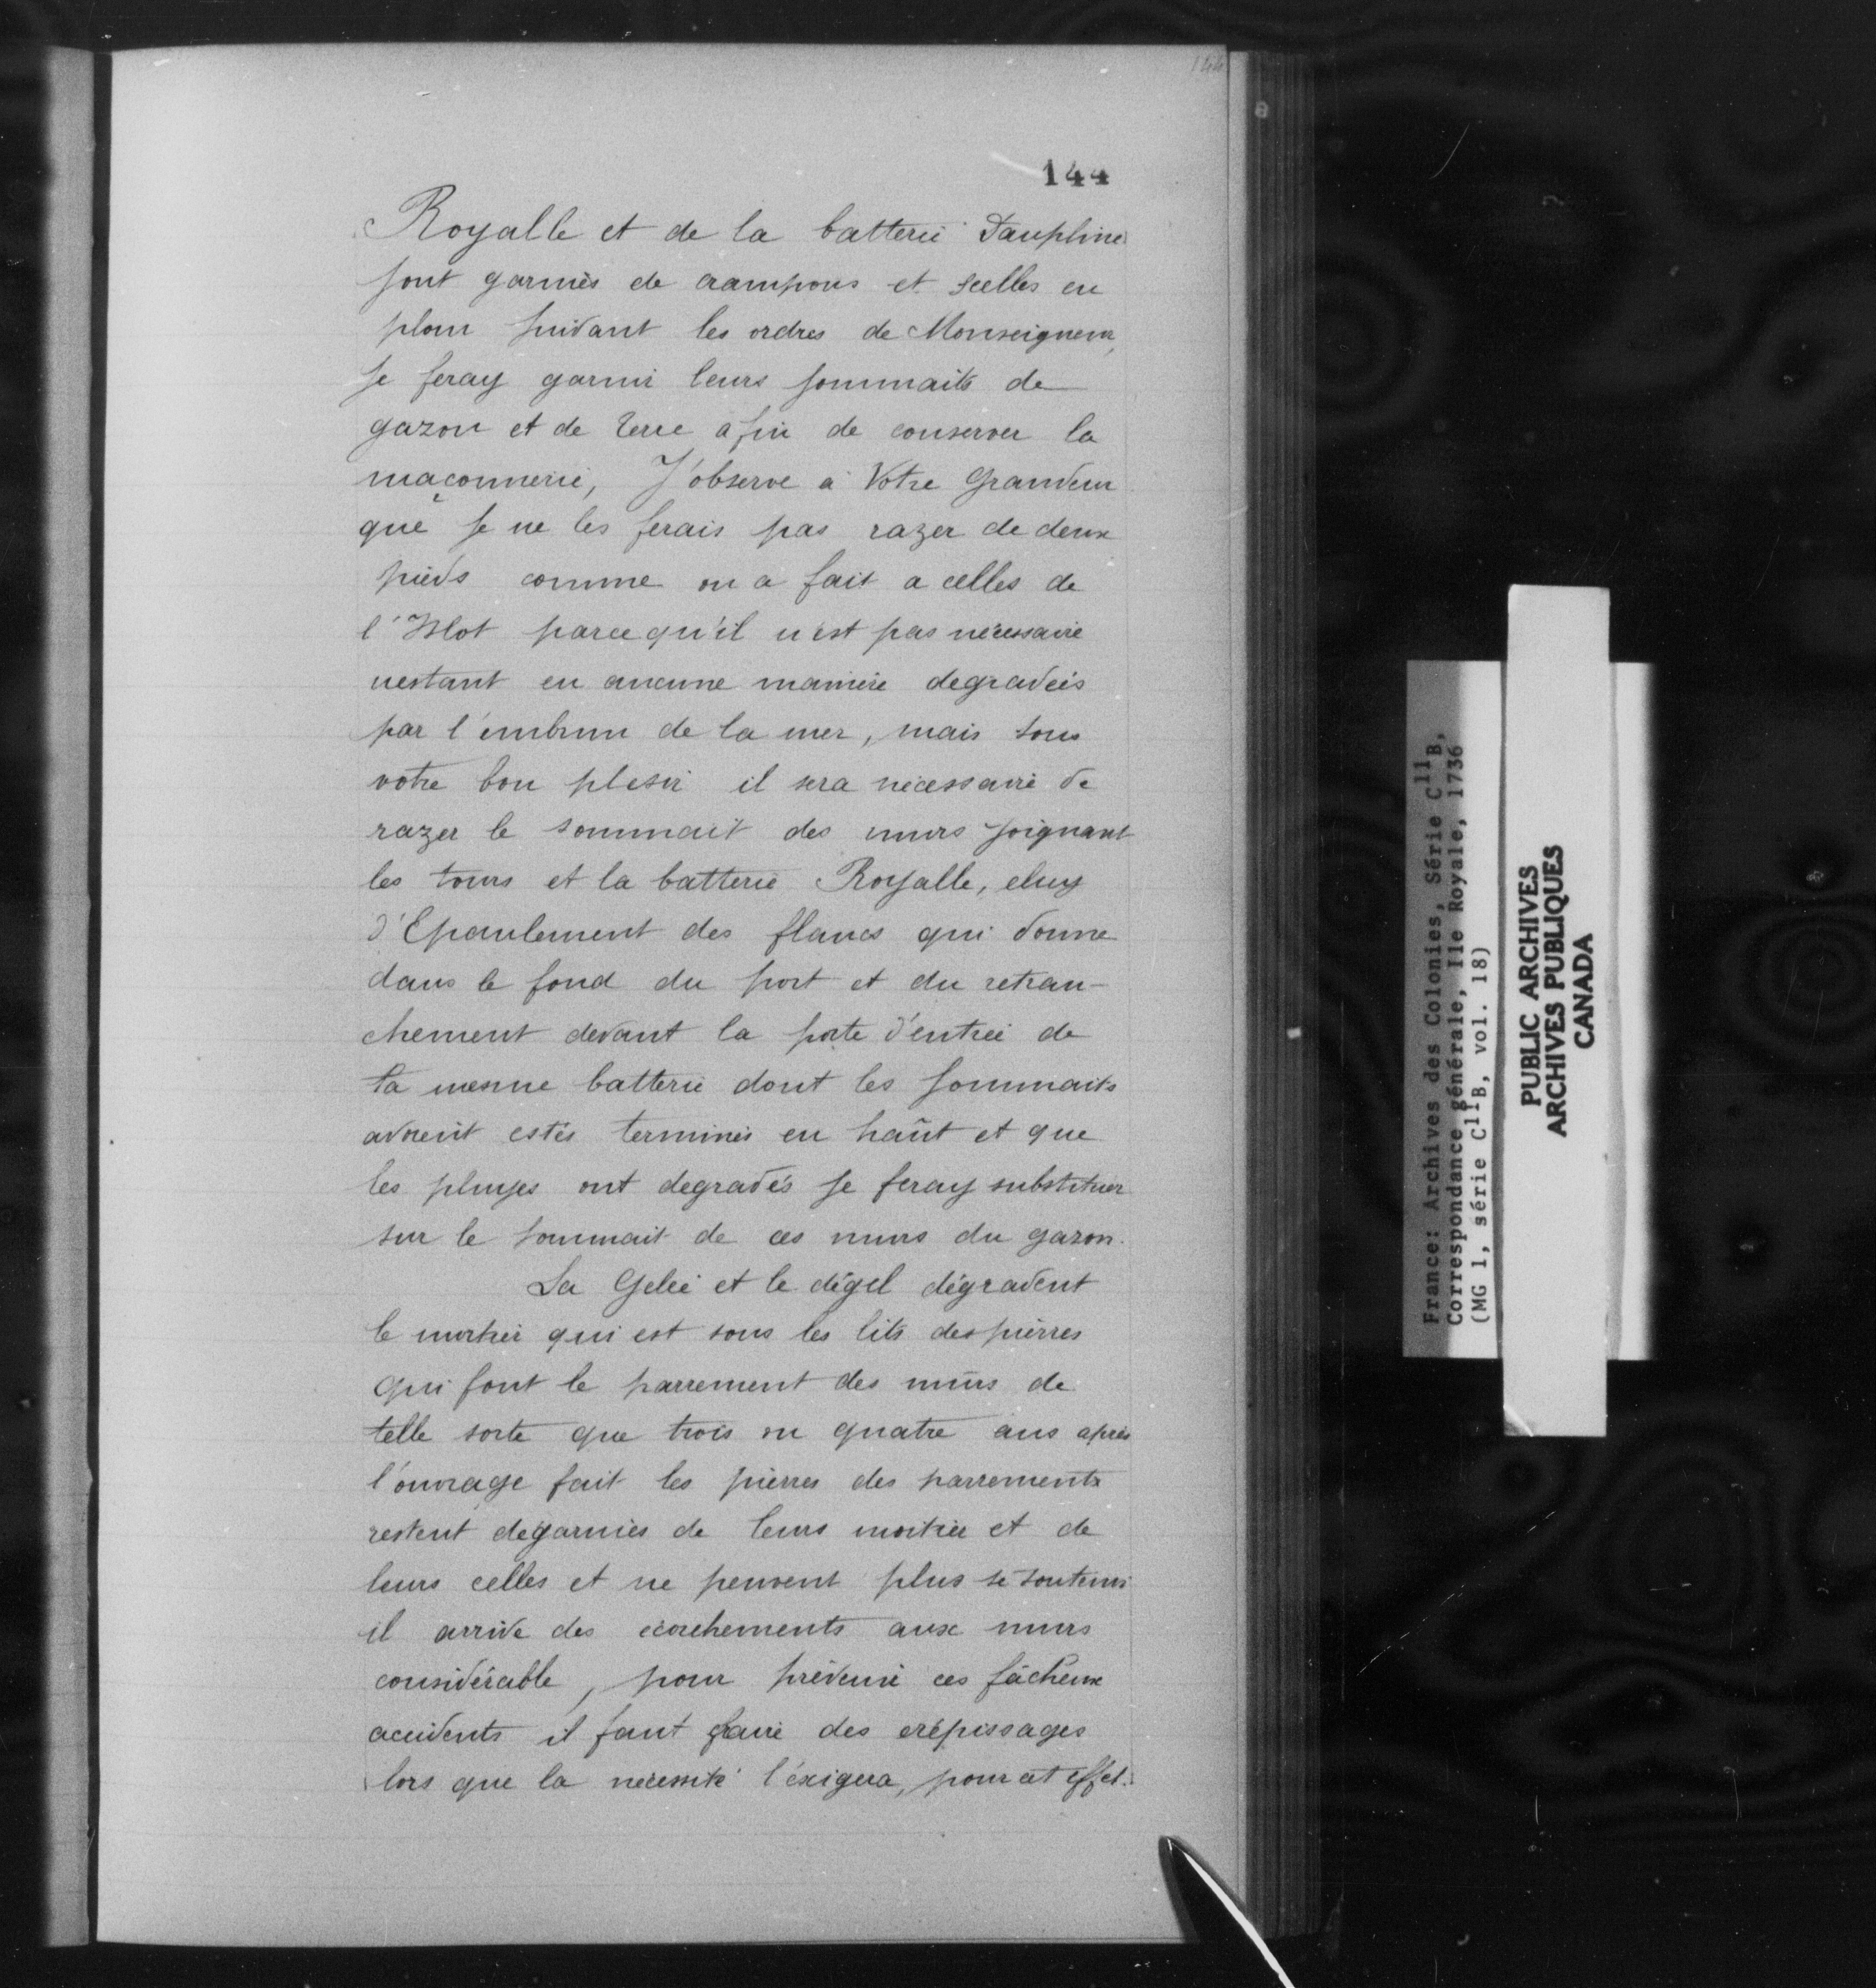 144
144
Royalle et de la batterie Dauphine
sont garniës de crampons et scelles en
plom suivant les ordres de Monseigneur,
Je feray garnir leurs sommaits de
gazon et de terre afin de conserver la
maçonnerie, J'observe a Votre Grandeur
que Je ne les ferais pas razer de deux
pieds comme on a fait a celles de
l'Islot parcequ'il n'est pas nécessaire
nestant en aucune maniere degradeés
par l'embrun de la mer, mais sous
votre bon plesir il sera nécessaire de
razer le sommait des murs joignant
les tours et la batterie Royalle, eluy
d'Epaulement des flancs qui donne
dans le fond du port et du retran-
chement devant la porte d'entrée de
la mesme batterie dont les sommaits
avoient estés terminés en haût et que
les pluyes ont degradés Je feray substituer
sur le sommait de ces murs du gazon.
La Gelée et le dégel dégradent
le mortier qui est sous les lits des pierres
qui font le parrement des murs de
telle sorte que trois ou quatre ans après
l'ouvrage fait les pierres des parrements
restent degarnies de leurs moitier et de
leurs celles et ne peuvent plus se soutenir
il arrive des écorchements aux murs
considérable, pour prévenir ces fâcheux
accidents il faut faire des crépissages
lors que la necessité l'éxigera, pour cet effet.
France: Archives des Colonies, Série C11B,
Correspondance générale, Ile Royale, 1736
(MG 1, série C11B, vol. 18)
PUBLIC ARCHIVES
ARCHIVES PUBLIQUES
CANADA